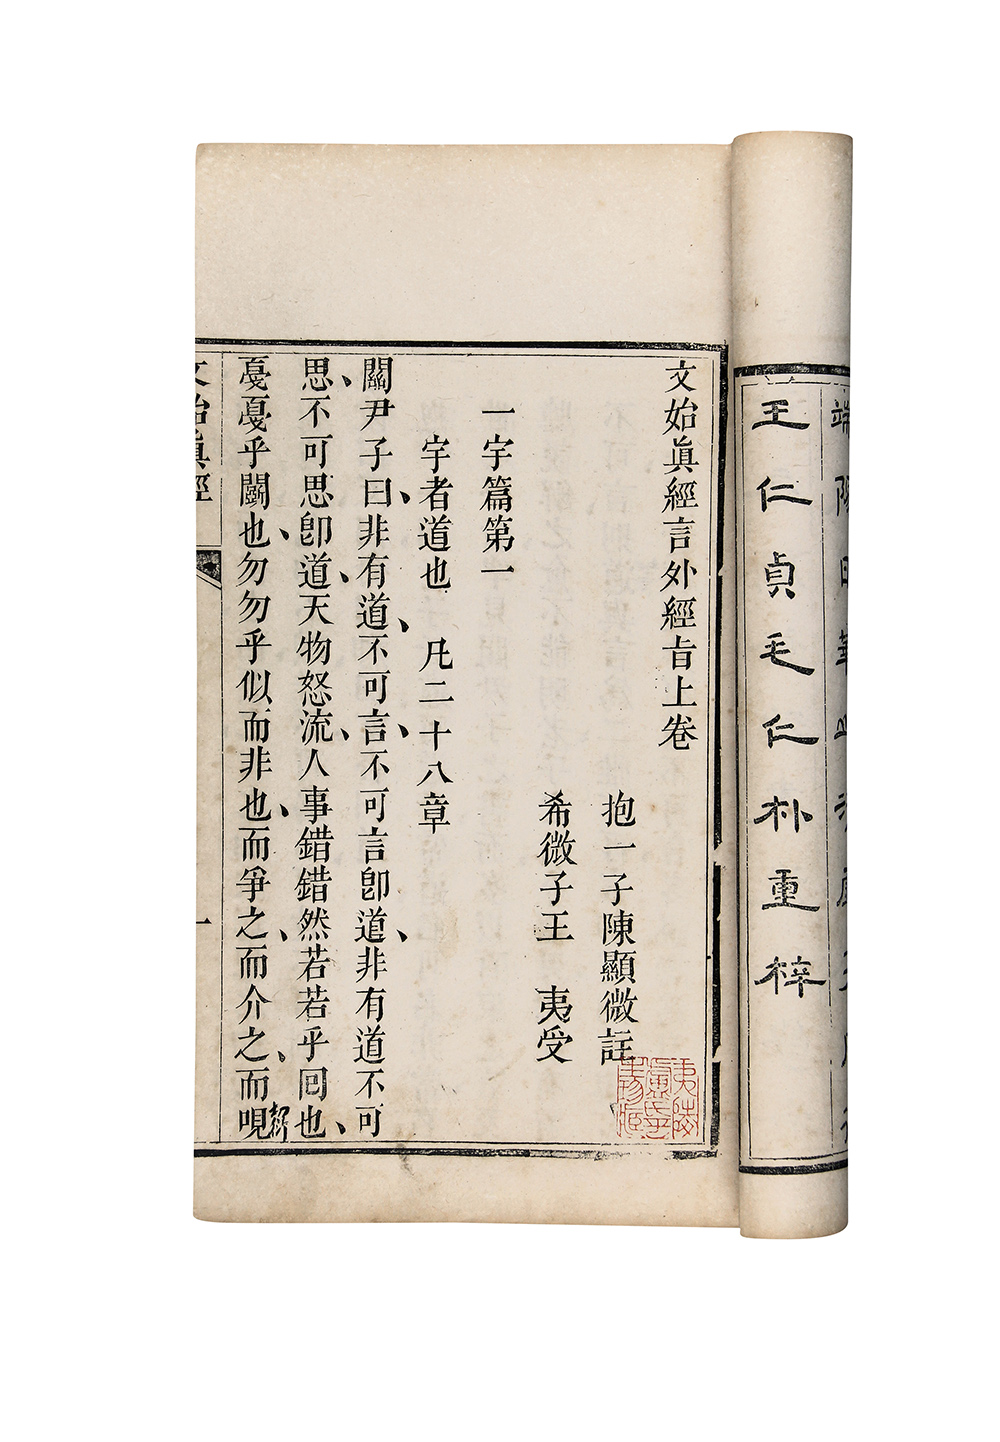 王仁貞毛仁朴重梓
文始眞經言外經旨上卷
抱一子陳顯微註
希微子王　夷受
一宇篇第一
宇者道也　凡二十八章
關尹子曰非有道不可言不可言卽道非有道不可
思不可思卽道天物怒流人事錯錯然若若乎回也
戞戞乎鬭也勿勿乎似而非也而爭之而介之而哯
文始眞經
一